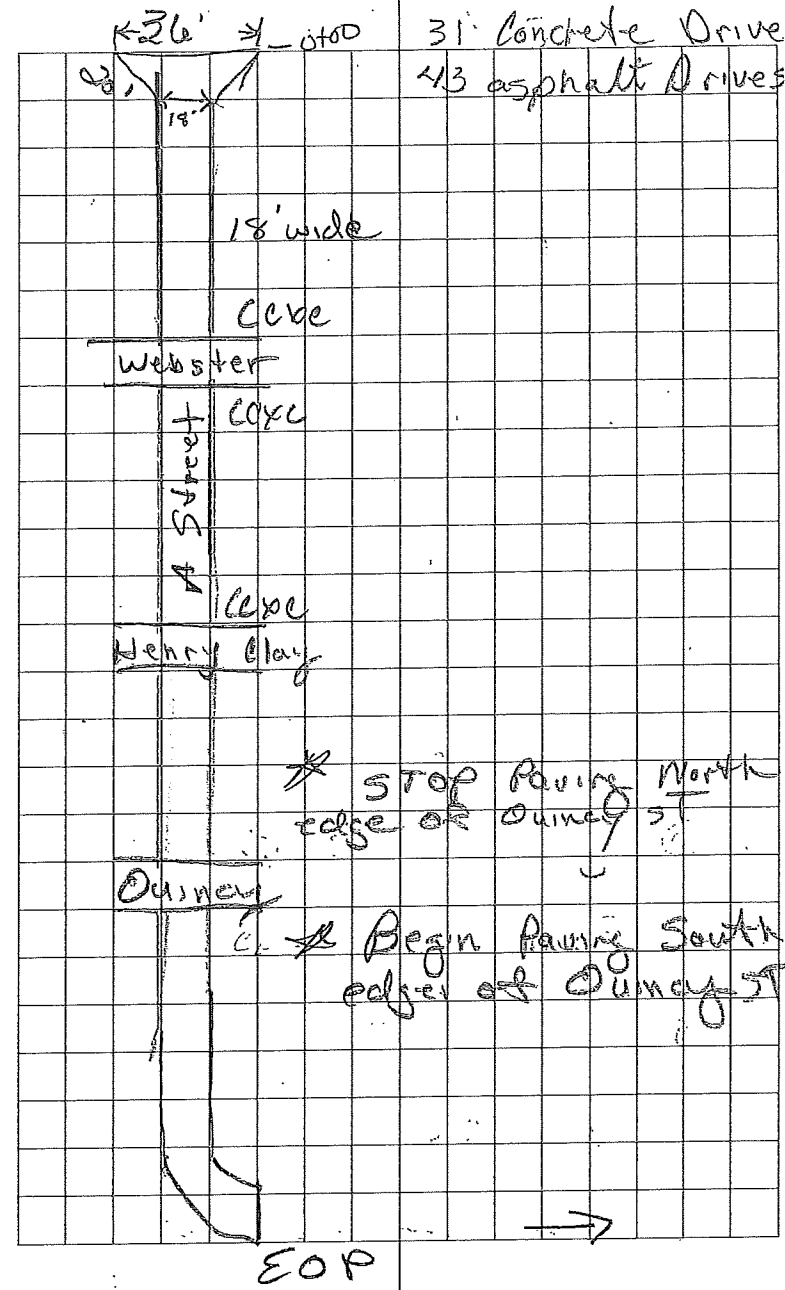 36' 0+00 31 Concrete Drive
43 asphalt Drives
20'
18'
18' wide
Webster
A Street
Henry Clay
* STOP Paving North
edge of Quincy ST
Quincy
* Begin Paving South
edge of Quincy ST
EOP